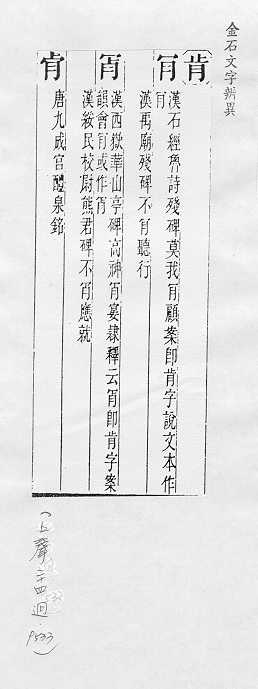 金石文字辨異
肯
肎
漢石經魯詩殘碑莫我肎顧案即肯字說文本作
肎
漢再廟殘碑不肎聽行
肎
漢西嶽華山亭碑高神肎宴隸釋云肎即肯字案
韻會肎或作肎
漢綏民校尉熊君碑不肎應就
肯
唐九成宮醴泉銘
(上聲二十四迥·P533)